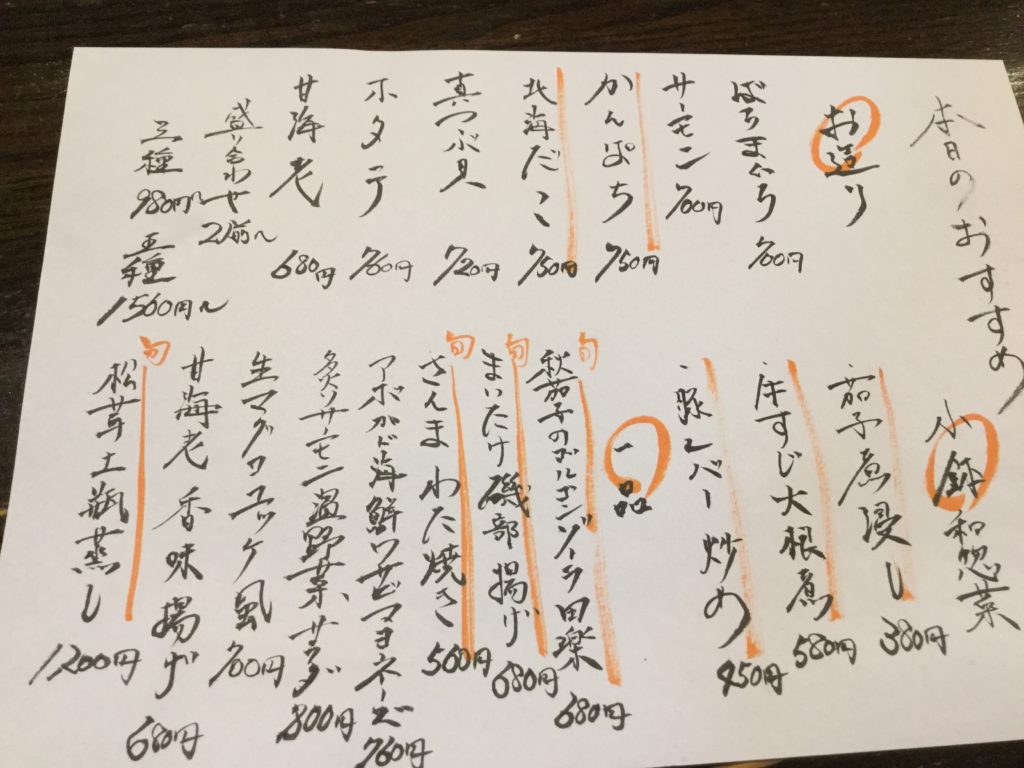 本日のおすすめ
お造り
ばちまぐろ 700円
サーモン 700円
かんぱち 750円
北海だこ 750円
真つぶ貝 720円
ホタテ 780円
甘海老 680円
盛り合わせ 2人前〜
三種 980円〜
五種 1560円〜
小鉢 和惣菜
・茄子煮浸し 380円
・牛すじ大根煮 580円
・豚レバー炒め 450円
一品
旬 秋茄子のゴルゴンゾーラ田楽 680円
旬 まいたけ磯部揚げ 680円
旬 さんまわた焼き 560円
アボカド海鮮ワサビマヨネーズ 760円
炙りサーモン温野菜サラダ 800円
生マグロユッケ風 700円
甘海老香味揚げ 680円
旬 松茸土瓶蒸し 1200円